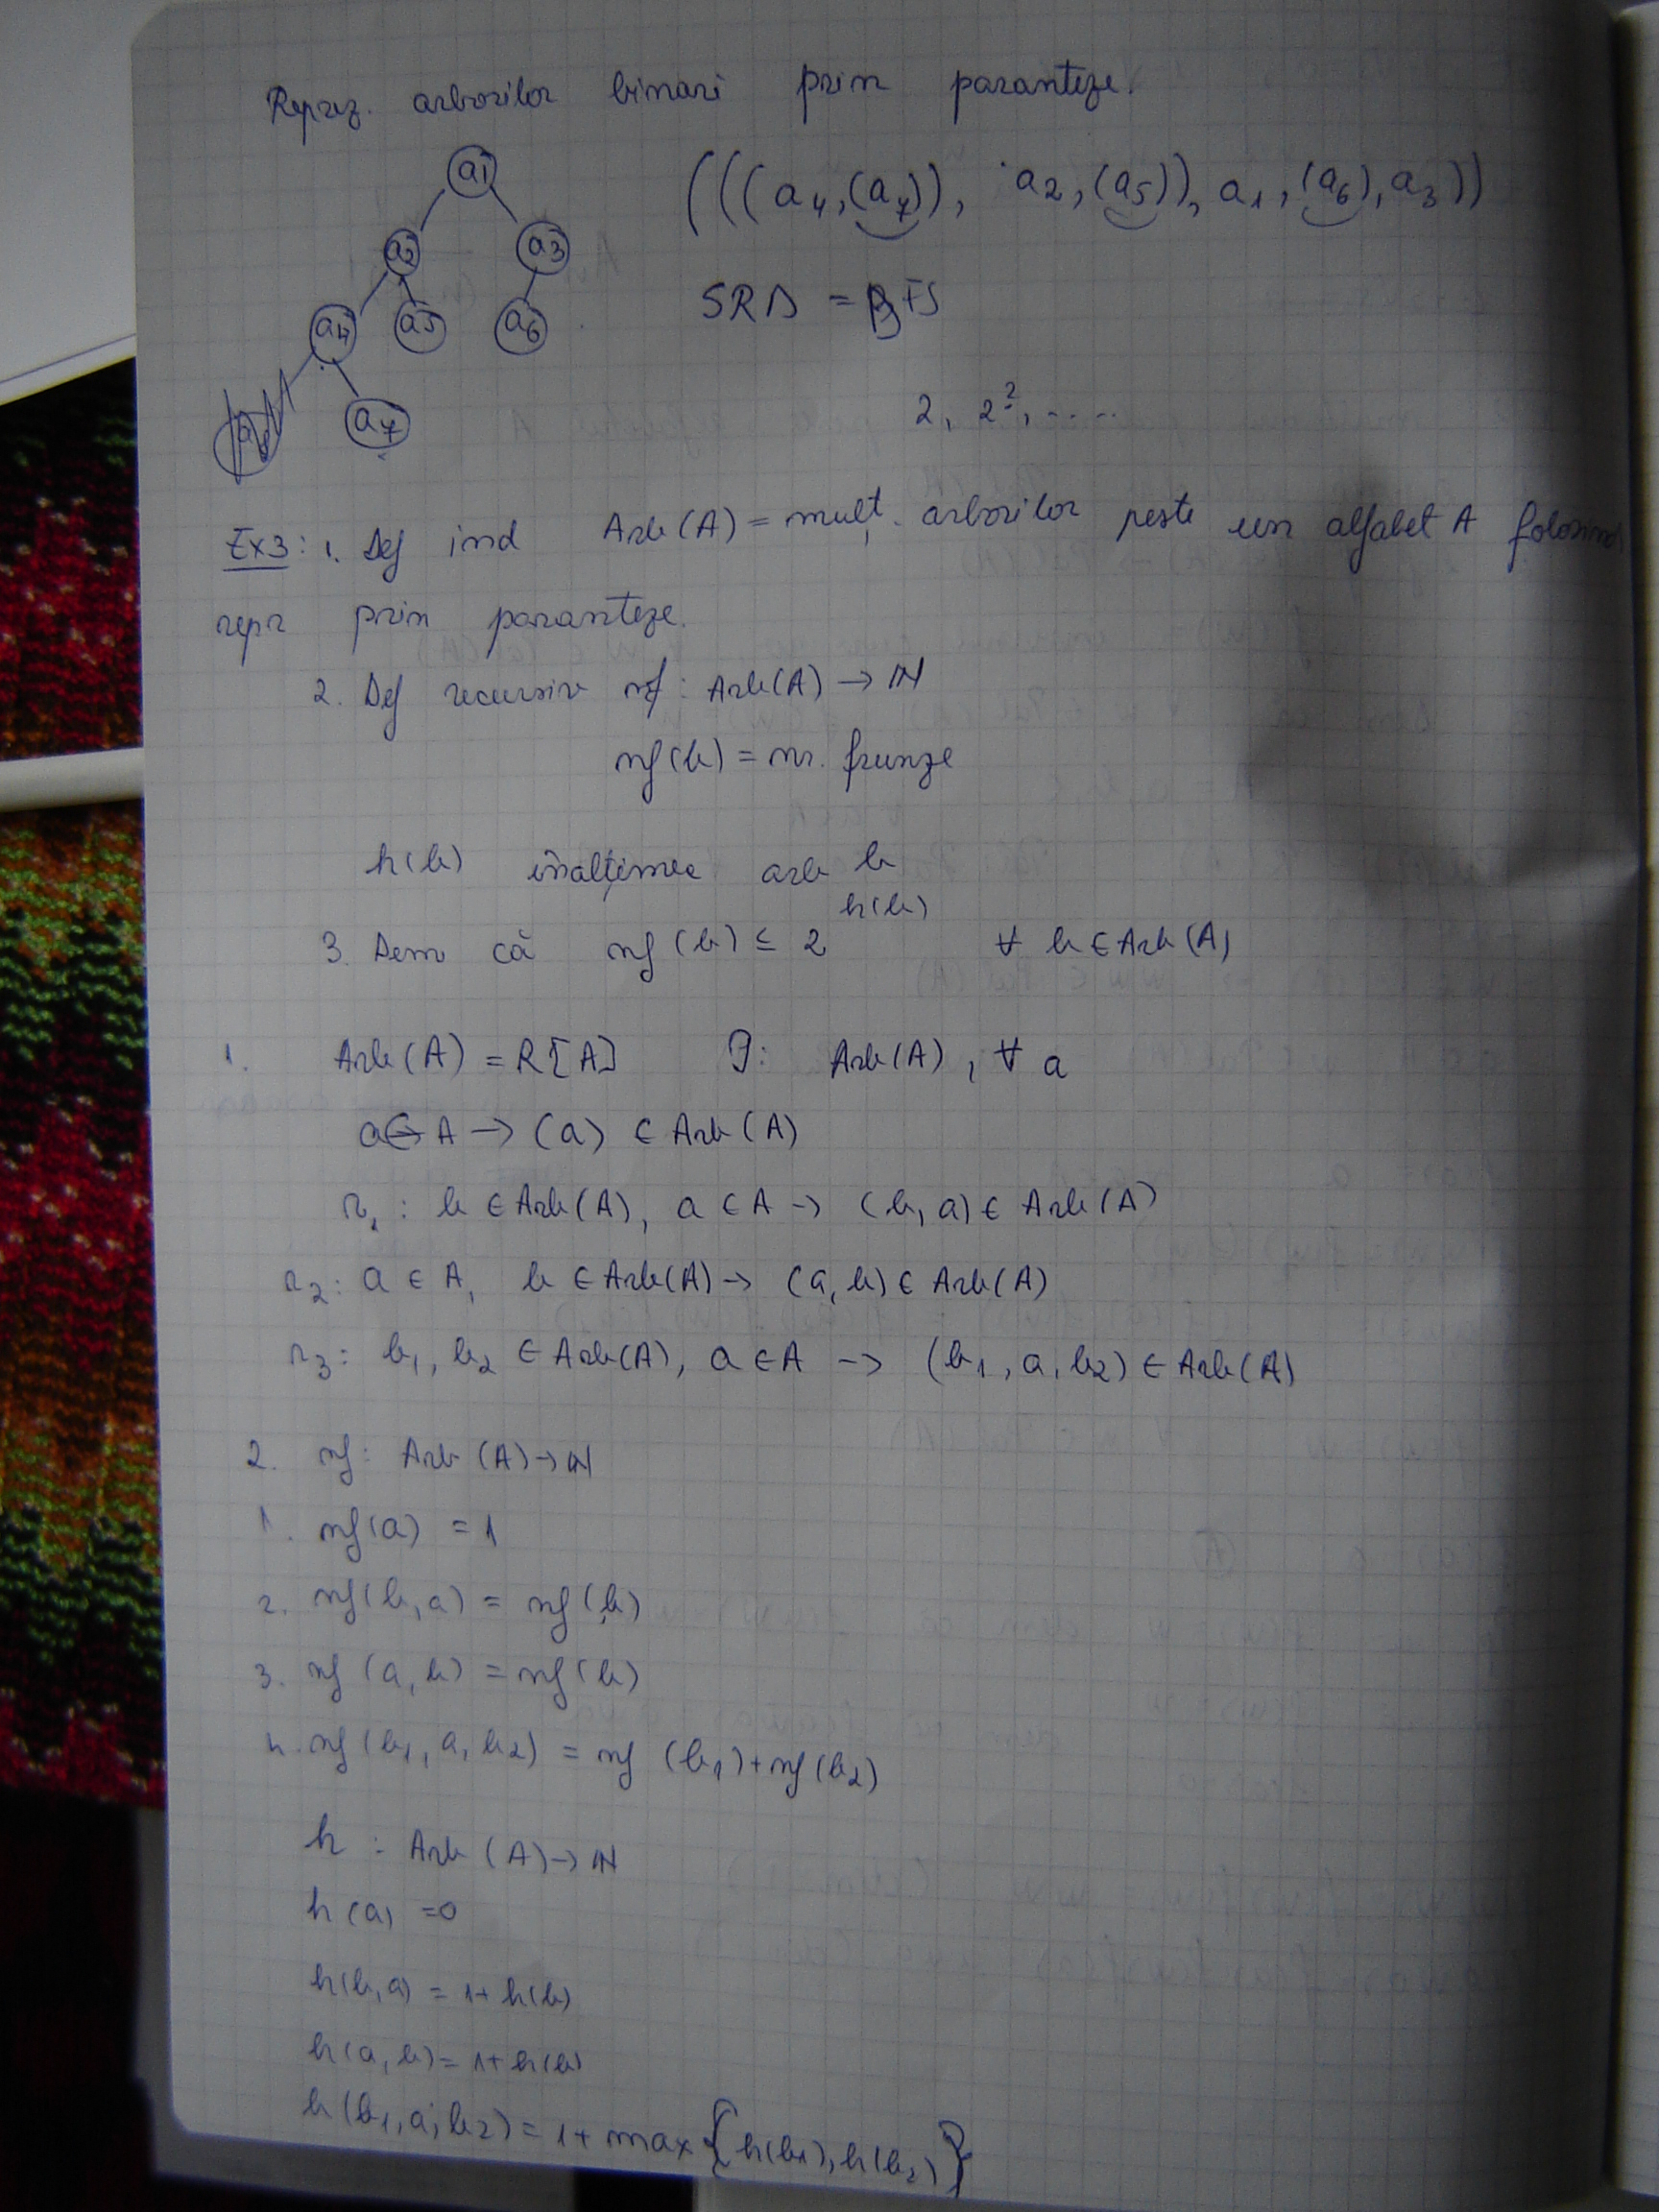 Reprez. arborilor binari prin paranteze.
a1
(((a4,(a7)), a2,(a5)), a1,(a6),a3))
a2 a3
a4 a5 a6
SRD = BFS
a7
2, 2², .....
Ex3: 1. Def ind Arb(A) = mulț. arborilor peste un alfabet A folosind
repr prin paranteze.
2. Def recursiv nf: Arb(A) → ℕ
nf(b) = nr. frunze
h(b) înălțimea arb b
3. Dem că nf(b) ≤ 2^h(b) ∀ b ∈ Arb(A)
1. Arb(A) = R[A] J: Arb(A), ∀ a
a ∈ A → (a) ∈ Arb(A)
r1: b ∈ Arb(A), a ∈ A → (b, a) ∈ Arb(A)
r2: a ∈ A, b ∈ Arb(A) → (a, b) ∈ Arb(A)
r3: b1, b2 ∈ Arb(A), a ∈ A → (b1, a, b2) ∈ Arb(A)
2. nf: Arb(A) → ℕ
1. nf(a) = 1
2. nf(b, a) = nf(b)
3. nf(a, b) = nf(b)
4. nf(b1, a, b2) = nf(b1) + nf(b2)
h: Arb(A) → ℕ
h(a) = 0
h(b, a) = 1 + h(b)
h(a, b) = 1 + h(b)
h(b1, a, b2) = 1 + max{h(b1), h(b2)}